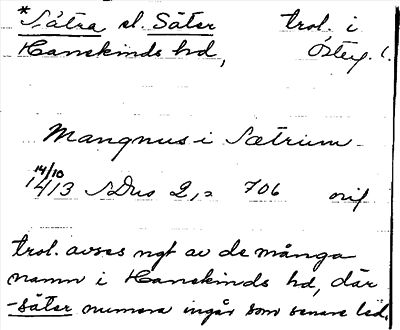 *Sätra el. Säter trol. i
Hanekinds hd, Östg. l.
Mangnus i Sætrum
14/10
1413 SDns 2, s 706 orig
trol. avses ngt av de många
namn i Hanekinds hd, där
-säter numera ingår som senare led.